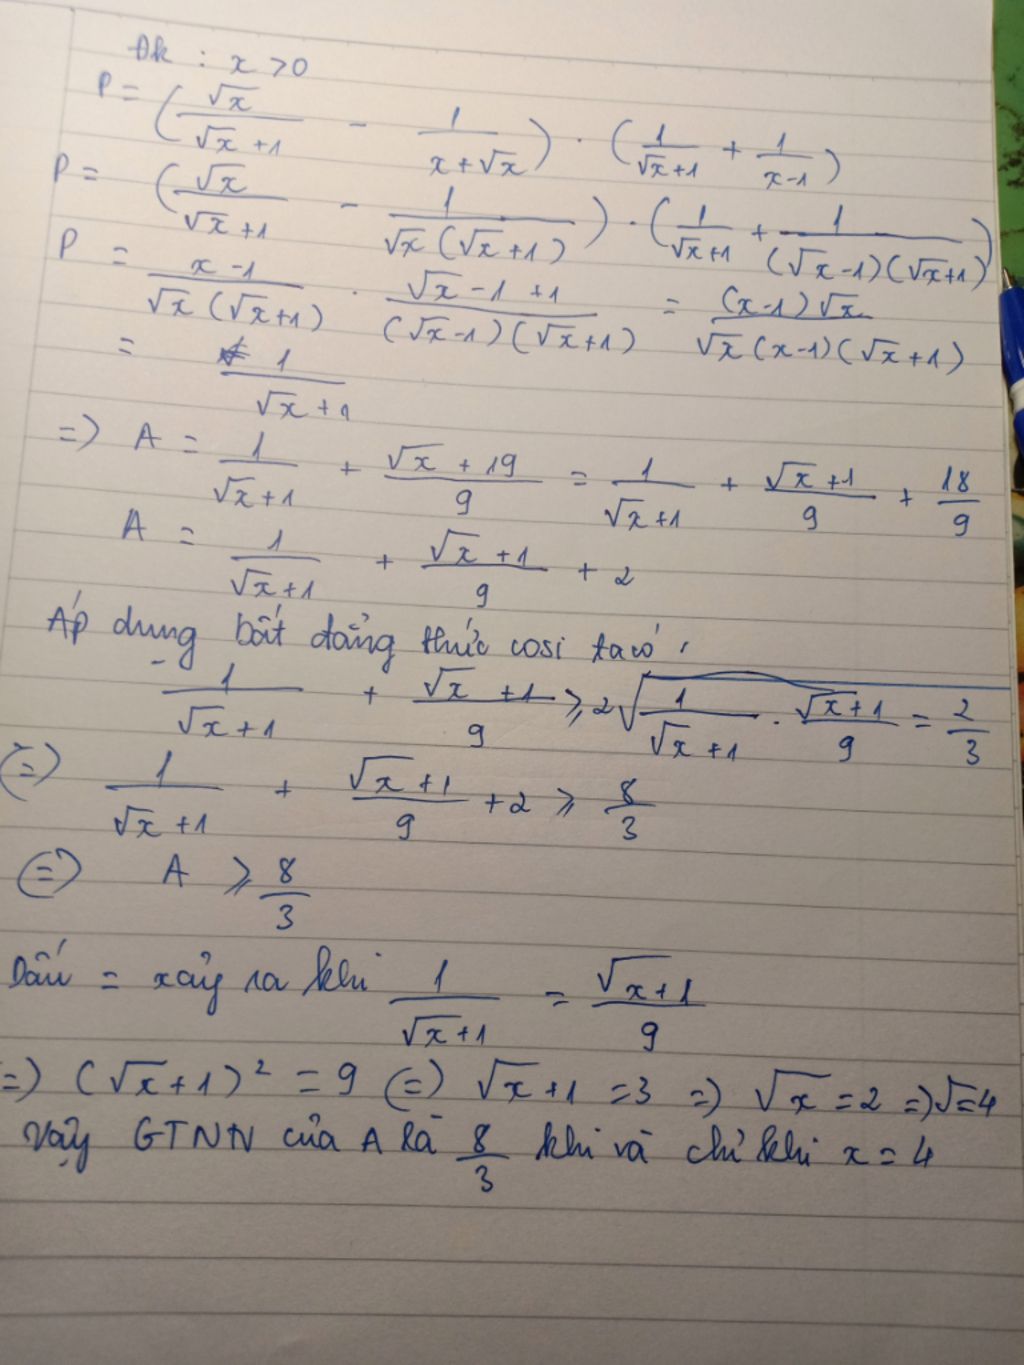 Đk : x > 0
P = (√x/(√x+1) - 1/(x+√x)) . (1/(√x+1) + 1/(x-1))
P = (√x/(√x+1) - 1/(√x(√x+1))) . (1/(√x+1) + 1/((√x-1)(√x+1)))
P = (x-1)/(√x(√x+1)) . (√x-1+1)/((√x-1)(√x+1)) = ((x-1)√x)/(√x(x-1)(√x+1))
= 1/(√x+1)
=> A = 1/(√x+1) + (√x+19)/9 = 1/(√x+1) + (√x+1)/9 + 18/9
A = 1/(√x+1) + (√x+1)/9 + 2
Áp dụng bất đẳng thức cosi ta có :
1/(√x+1) + (√x+1)/9 ⩾ 2√(1/(√x+1) . (√x+1)/9) = 2/3
(=) 1/(√x+1) + (√x+1)/9 + 2 ⩾ 8/3
(=) A ⩾ 8/3
Dấu = xảy ra khi 1/(√x+1) = (√x+1)/9
=) (√x+1)² = 9 (=) √x+1 = 3 =) √x = 2 =) √=4
Vậy GTNN của A là 8/3 khi và chỉ khi x = 4